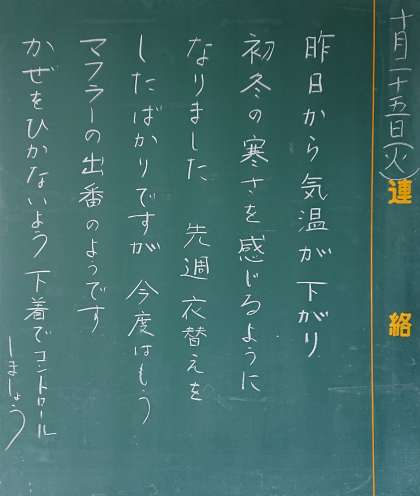 十月二十五日(火)
連絡
昨日から気温が下がり
初冬の寒さを感じるように
なりました 先週衣替えを
したばかりですが 今度はもう
マフラーの出番のようです
かぜをひかないよう下着でコントロール
しましょう